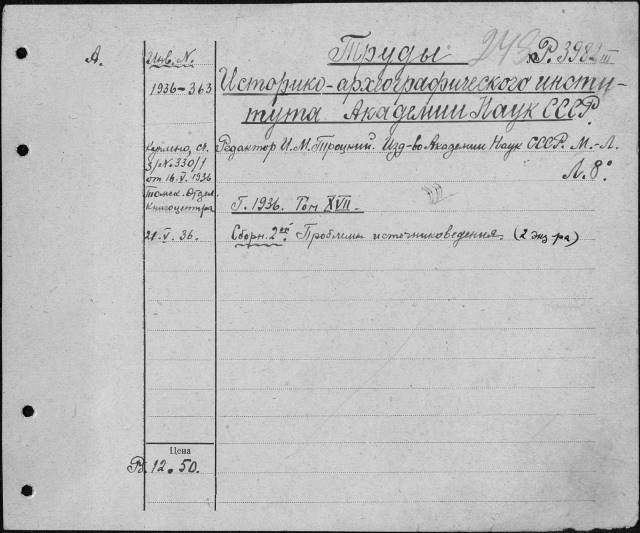 А.
Инв. N.
1936-363
Труды
248
№ Р. 398/III
Историко-археографического инсти-
тута Академии Наук СССР.
Куплено, сч.
З/N.330/1
от 16.V.1936
Томск. Отдел.
Книгоцентра
Редактор И.М. Троцкий. Изд-во Академии Наук СССР. М.-Л.
Л. 8°
Г. 1936. Том XVII.
21.V.36.
Сборн. 2ой Проблемы источниковедения. (2 экз-ра)
Цена
Р. 12.50.